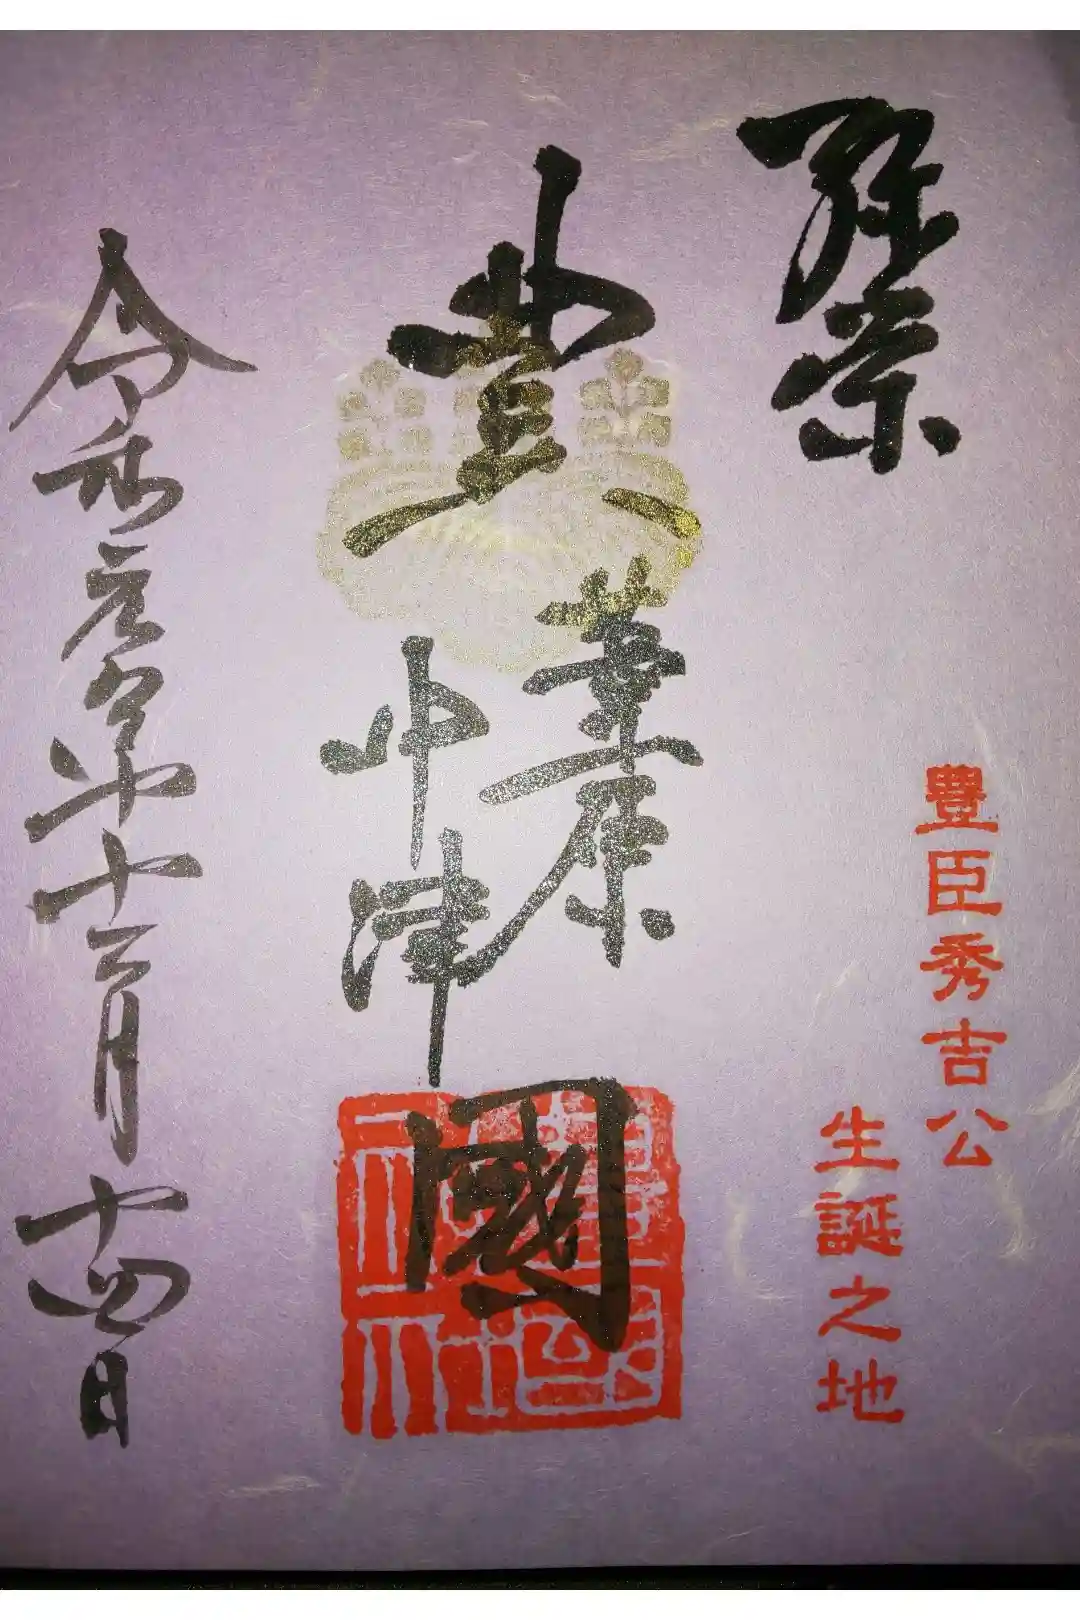 豊臣秀吉公
生誕之地
豊
葦原
中津
國
令和元年十二月十四日